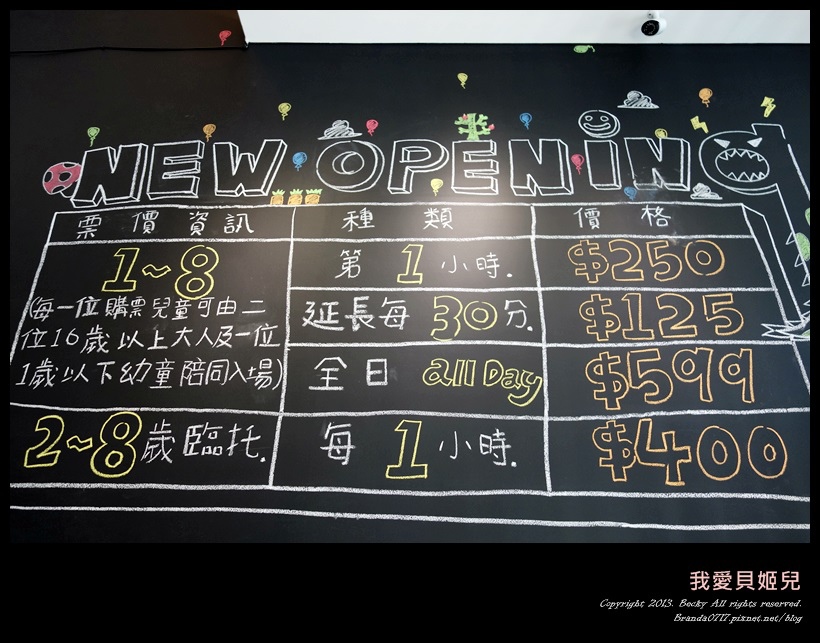 NEW OPENING
票價資訊 種類 價格
1~8 第1小時. $250
(每一位購票兒童可由二
位16歲以上大人及一位
1歲以下幼童陪同入場)
延長每30分. $125
全日 all Day $599
2~8歲臨托. 每1小時. $400
我愛貝姬兒
Copyright 2013. Becky All rights reserved.
Branda0717.pixnet.net/blog